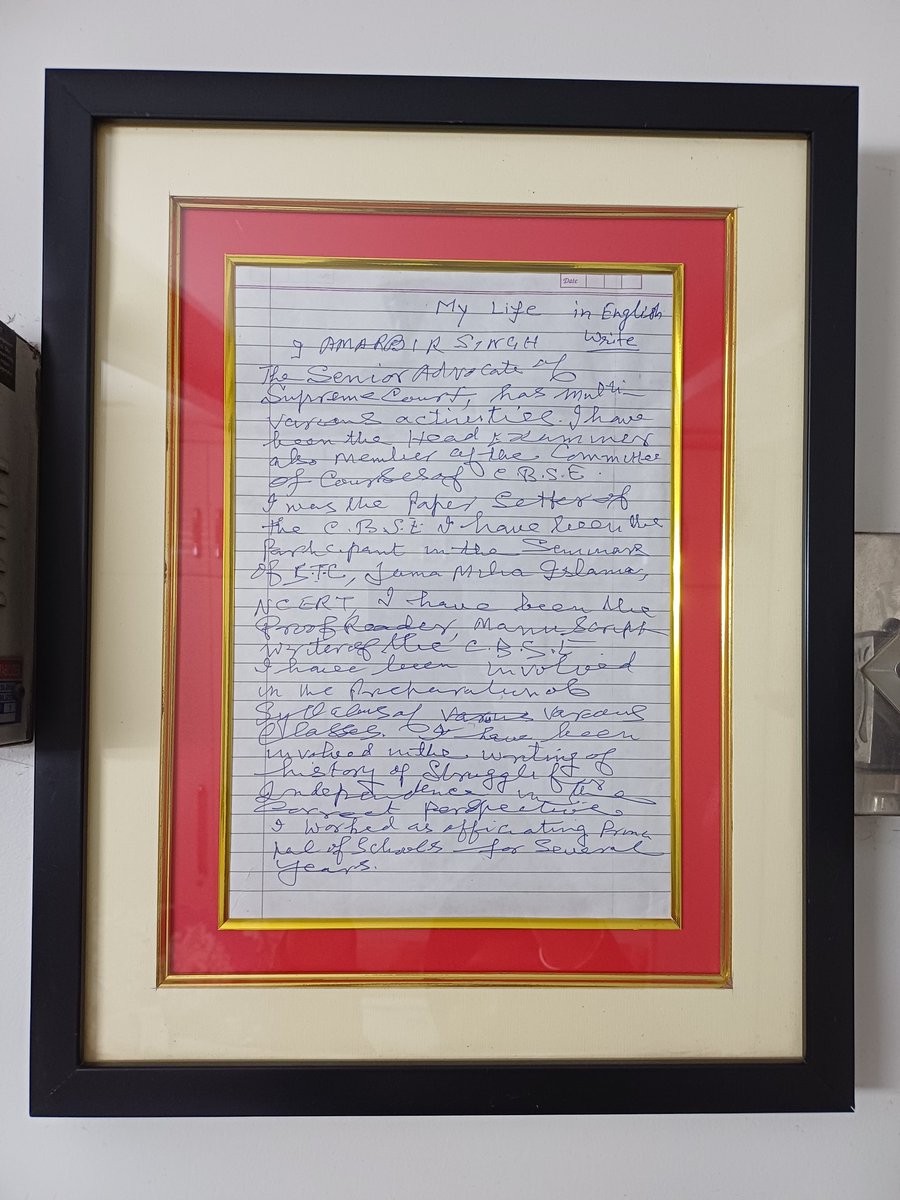 Date
My Life in English
Write
I AMARBIR SINGH
The Senior Advocate of
Supreme Court, has multi-
various activities. I have
been the Head Examiner
also Member of the Committee
Of Courses of C.B.S.E.
I was the Paper Setter of
the C.B.S.E I have been the
Participant in the Seminars
Of Islamia,
NCERT, I have been the
Proof Reader, Manuscript
writer of the C.B.S.E
I have been involved
in the Preparation of
Syllabus of various various
Classes. I have been
involved in the writing of
history of Struggle for
Independence in the
Correct Perspective.
I worked as officiating Princi
pal of Schools for Several
years.